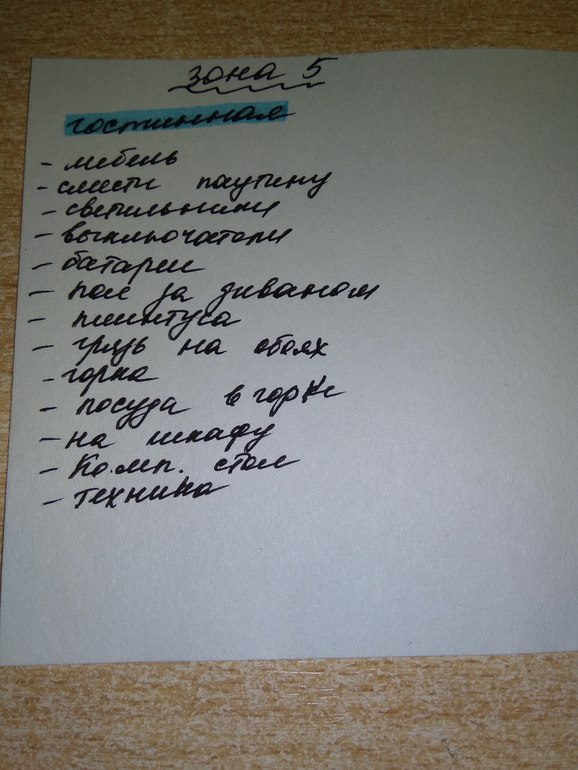 зона 5
гостинная
- мебель
- смести паутину
- светильники
- выключатели
- батареи
- пол за диваном
- плинтуса
- грязь на обоях
- горка
- посуда в горке
- на шкафу
- комп. стол
- техника